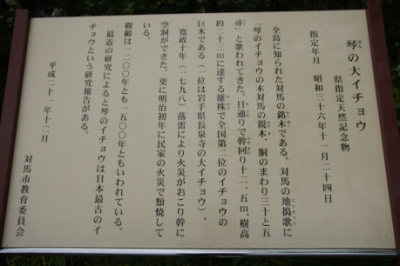 琴の大イチョウ
県指定天然記念物
指定年月 昭和三十六年十一月二十四日
全島に知られた対馬の銘木である。対馬の地搗歌に
「琴のイチョウの木対馬の親木 胴のまわり三十と五
尋」と歌われてきた。目通りで幹回り十二.五m、樹高
約二十三mに達する雄株で全国第二位のイチョウの
巨木である(一位は岩手県長泉寺の大イチョウ)。
寛政十年(一七九八)落雷により火災がおこり幹に
空洞ができた。更に明治初年に民家の火災で類焼して
いる。
樹齢は一二〇〇年とも一五〇〇年ともいわれている。
最近の研究によると琴のイチョウは日本最古のイ
チョウという研究報告がある。
平成二十一年十二月
対馬市教育委員会